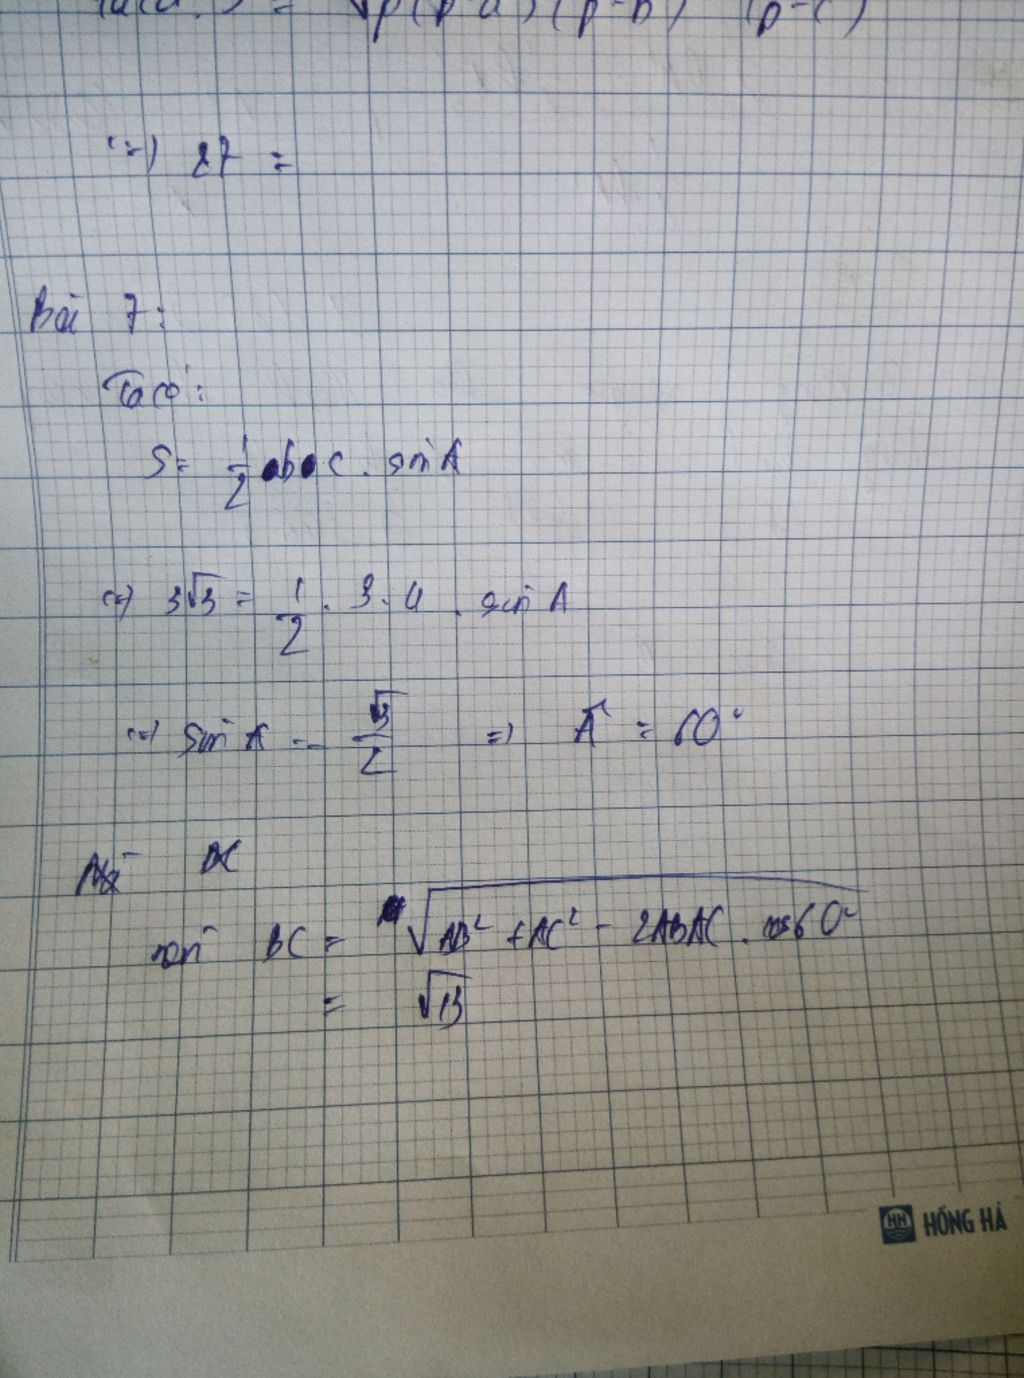 Ta có: S = √p(p-a)(p-b)(p-c)
(=) 27 =
Bài 7:
Ta có:
S = 1/2 b c . sin A
(=) 3√3 = 1/2 . 3 . 4 . sin A
(=) sin A = √3/2 => Â = 60°
nên BC = √AB² + AC² - 2AB AC . cos 60°
= √13
HỒNG HÀ